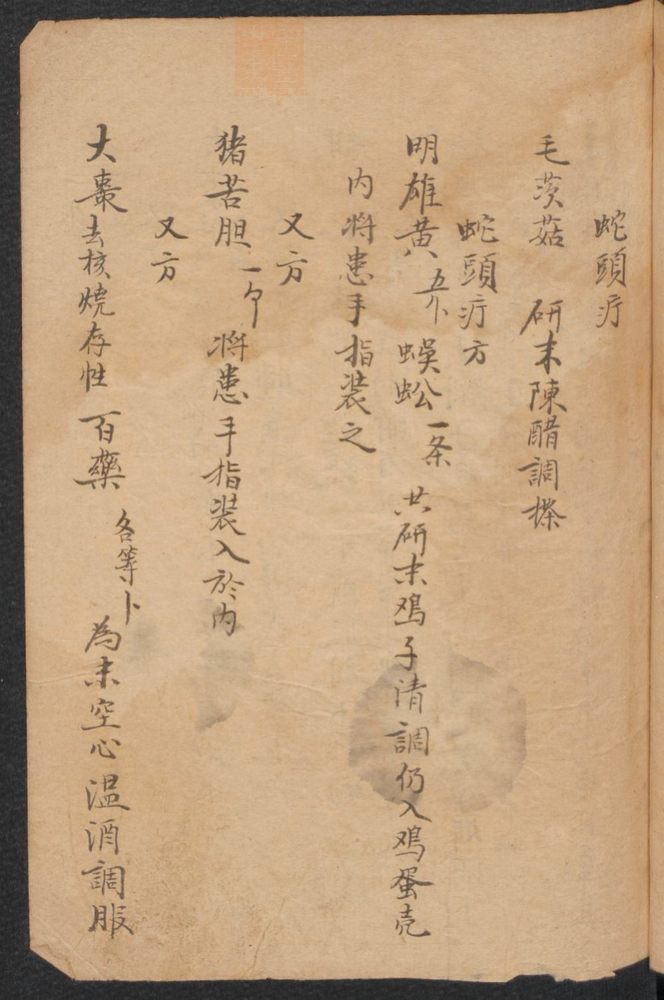 蛇頭疔
毛茨菇 研末陳醋調搽
蛇頭疔方
明雄黃 五卜 蜈蚣 一条 共研末鸡子清調仍入鸡蛋壳
内将患手指装之
又方
猪苦胆 一个 将患手指装入於内
又方
大棗去核燒存性 百藥 各等卜 為末空心温酒調服